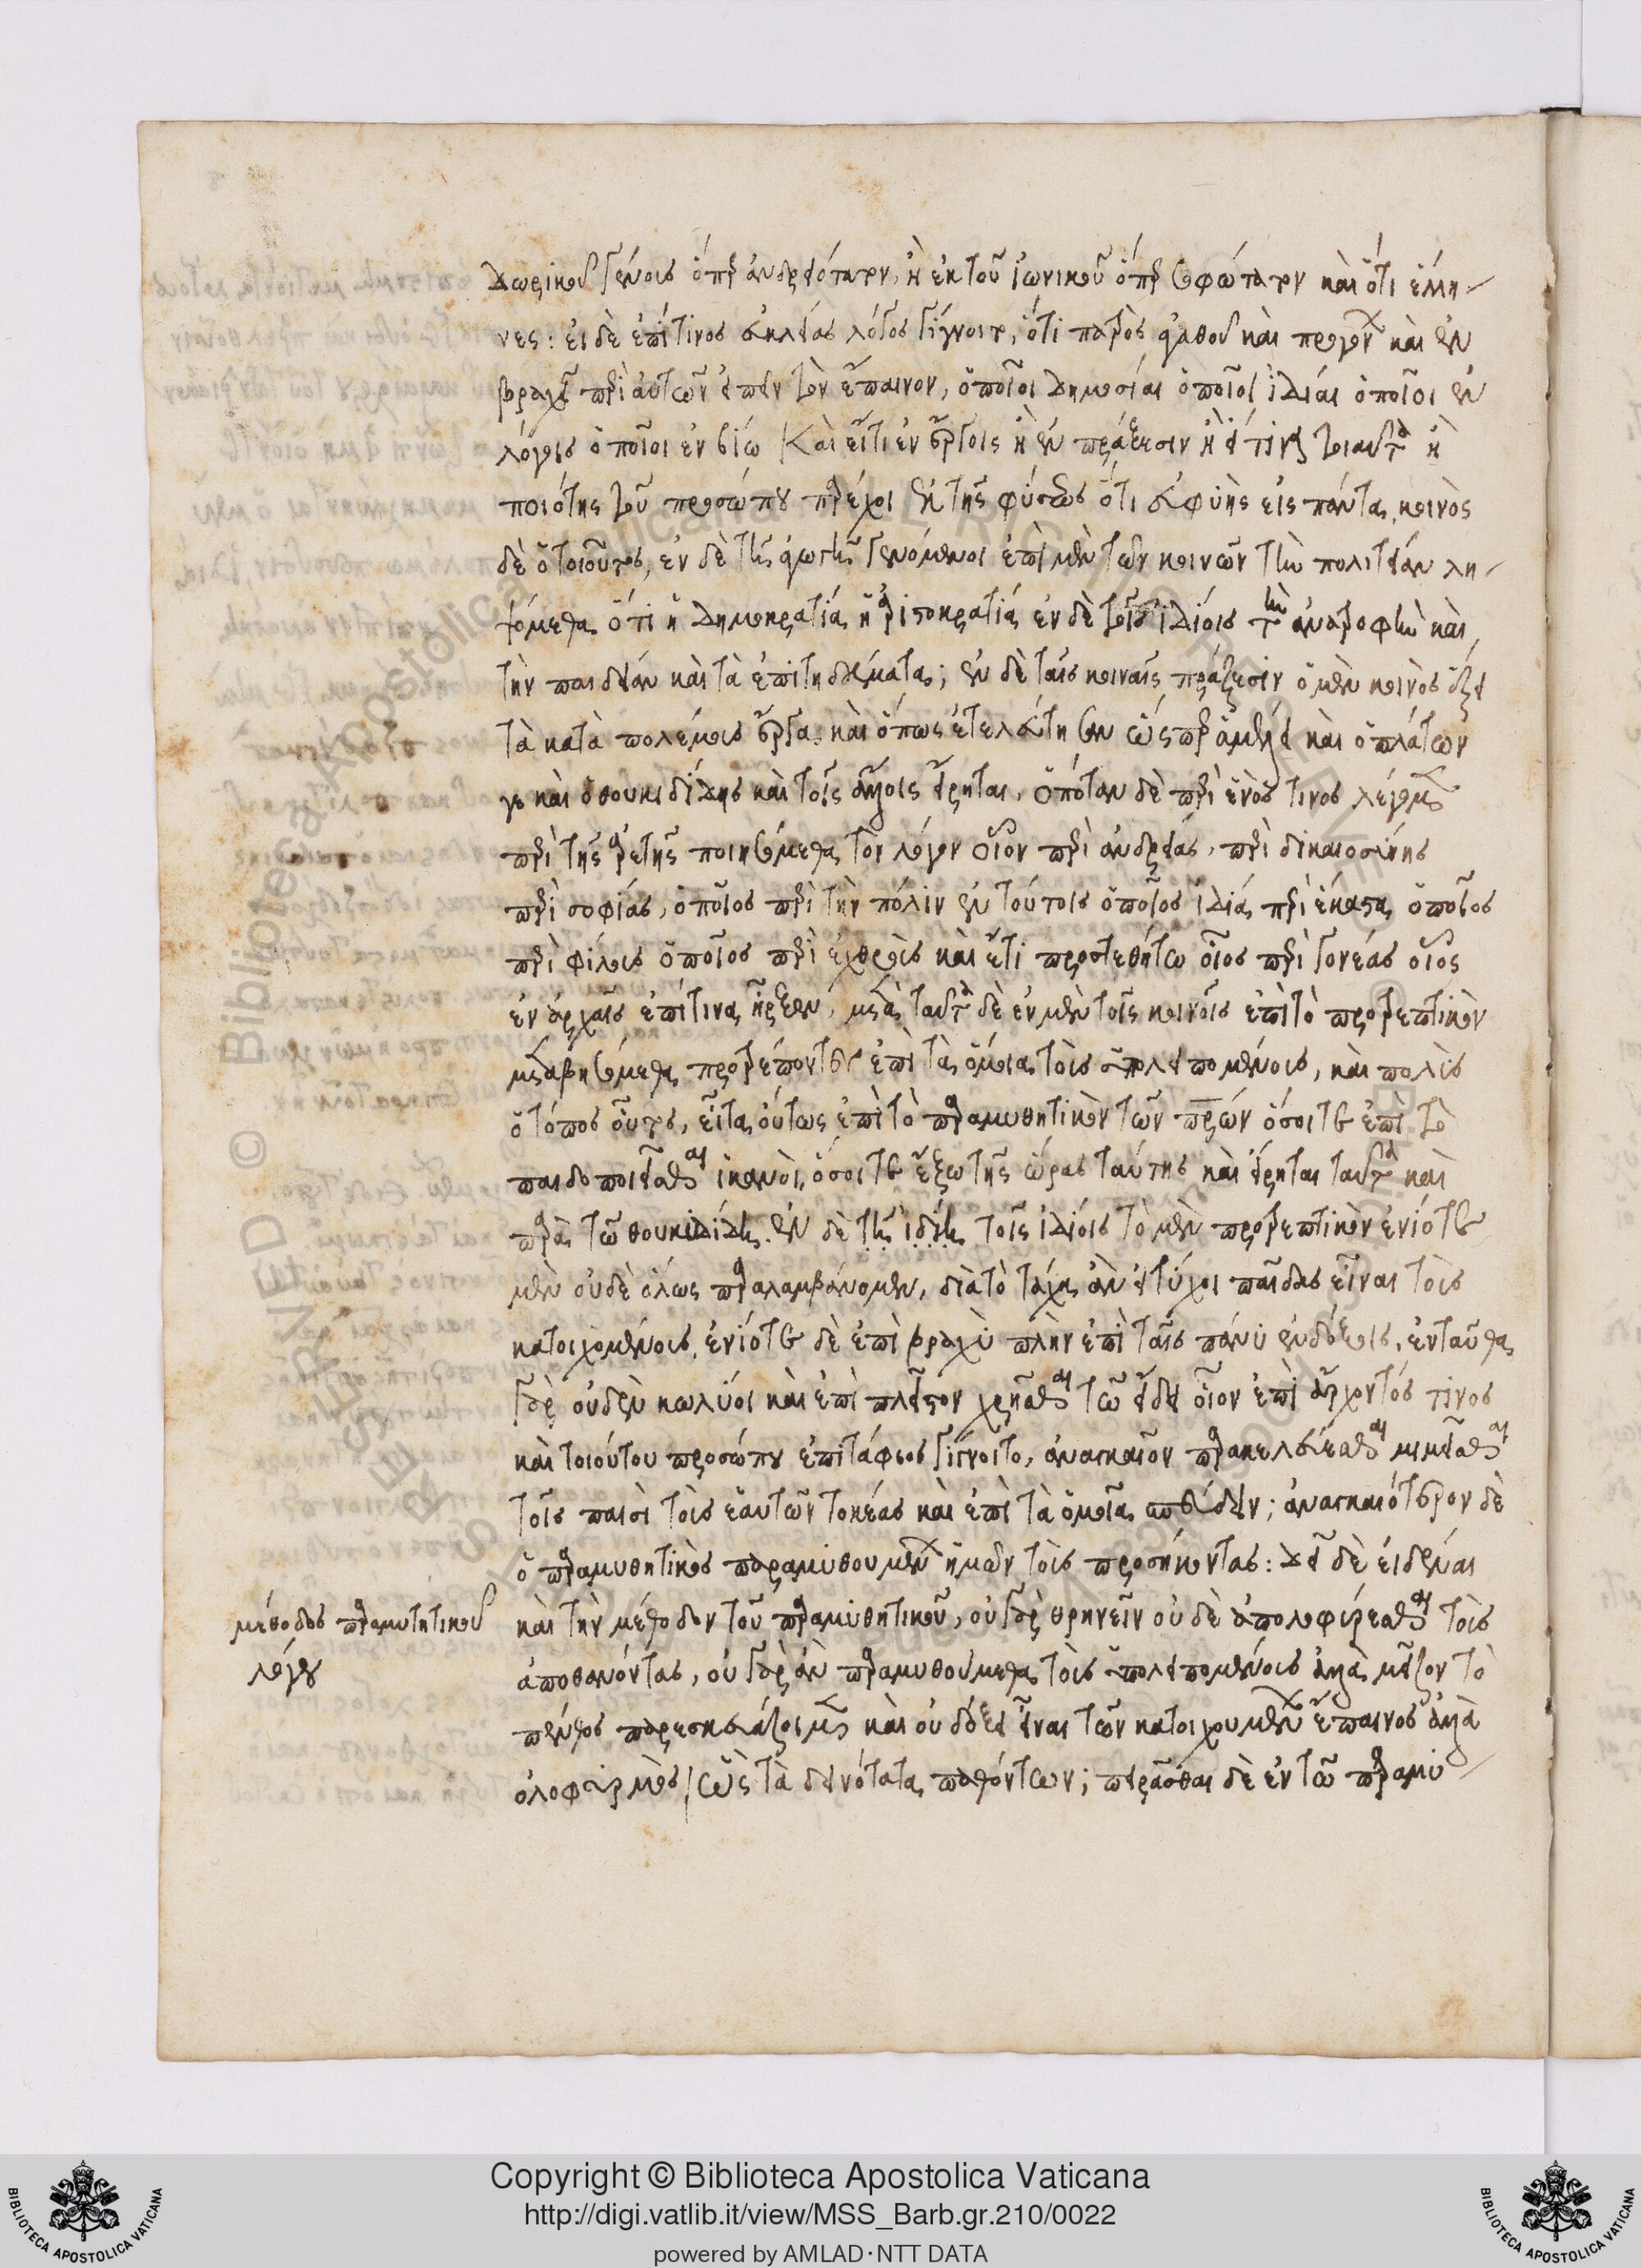 Δωρικοῦ γένους ὅπερ ἀνδρειότατον, ἢ ἐκ τοῦ ἰωνικοῦ ὅπερ σοφώτατον καὶ ὅτι ἕλλη-
νες: εἰ δὲ ἐπί τινος εὐκλείας λόγος γίγνοιτο, ὅτι πατρὸς ἀγαθοῦ καὶ προγόνων καὶ ἐν
βραχεῖ περὶ αὐτῶν εἰπεῖν τὸν ἔπαινον, ὁποῖοι δημοσίαι ὁποῖοι ἰδίαι ὁποῖοι ἐν
λόγοις ὁποῖοι ἐν βίω καὶ εἴτι ἐν ἔργοις ἢ ἐν πράξεσιν ἢ εἴ τινα τοιαῦτα ἡ
ποιότης τοῦ προσώπου παρέχοι ἐκ τῆς φύσεως ὅτι εὐφυὴς εἰς πάντα, κοινὸς
δὲ ὁ τοιοῦτος, ἐν δὲ τῆ ἀγωγῆ γενόμενοι ἐπὶ μὲν τῶν κοινῶν τὴν πολιτείαν λη-
ψόμεθα ὅτι ἢ δημοκρατία ἢ ἀριστοκρατία, ἐν δὲ τοῖς ἰδίοις τὴν ἀνατροφὴν καὶ
τὴν παιδείαν καὶ τὰ ἐπιτηδεύματα; ἐν δὲ ταῖς κοιναῖς πράξεσιν ὁ μὲν κοινὸς ἕξει
τὰ κατὰ πολέμους ἔργα καὶ ὅπως ἐτελεύτησαν ὥσπερ ἀμέλει καὶ ὁ πλάτων
γε καὶ ὁ θουκιδίδης καὶ τοῖς ἄλλοις εἴρηται, ὁπόταν δὲ περὶ ἑνός τινος λέγωμεν
περὶ τῆς ἀρετῆς ποιησόμεθα τὸν λόγον οἷον περὶ ἀνδρείας, περὶ δικαιοσύνης
περὶ σοφίας, ὁποῖος περὶ τὴν πόλιν ἐν τούτοις ὁποῖος ἰδία περὶ ἕκαστα, ὁποῖος
περὶ φίλους ὁποῖος περὶ ἐχθροὺς καὶ ἔτι προστεθήτω οἷος περὶ γονέας οἷος
ἐν ἀρχαῖς ἐπί τινας ἦρξεν, μετὰ ταῦτα δὲ ἐν μὲν τοῖς κοινοῖς ἐπὶ τὸ προτρεπτικὸν
μεταβησόμεθα προτρέποντες ἐπὶ τὰ ὅμοια τοὺς ὑπολειπομένους, καὶ πολὺς
ὁ τόπος οὗτος, εἶτα οὕτως ἐπὶ τὸ παραμυθητικὸν τῶν πατέρων ὅσοι τε ἐπὶ τὸ
παιδοποιεῖσθαι ἱκανοὶ, ὅσοι τε ἔξω τῆς ὥρας ταύτης καὶ εἴρηται ταῦτα καὶ
παρὰ τῶ θουκιδίδη. ἐν δὲ τῆ ἰδίη τοῖς ἰδίοις τὸ μὲν προτρεπτικὸν ἐνίοτε
μὲν οὐδὲ ὅλως παραλαμβάνομεν, διὰ τὸ τάχα ἂν εἰ τύχοι παῖδας εἶναι τοὺς
κατοιχομένους, ἐνίοτε δὲ ἐπὶ βραχὺ πλὴν ἐπὶ ταῖς πάνυ ἐνδόξοις, ἐνταῦθα
γὰρ οὐδὲν κωλύοι καὶ ἐπὶ πλεῖστον χρῆσθαι τῶ εἴδει οἷον ἐπὶ ἄρχοντός τινος
καὶ τοιούτου προσώπου ἐπιτάφιος γίγνοιτο, ἀναγκαῖον παρακελεύεσθαι μιμεῖσθαι
τοῖς παισὶ τοὺς ἑαυτῶν τοκέας καὶ ἐπὶ τὰ ὅμοια σπεύδειν; ἀναγκαιότερον δὲ
ὁ παραμυθητικὸς παραμυθουμένων ἡμῶν τοὺς προσήκοντας: Δεῖ δὲ εἰδέναι
μέθοδος παραμυτητικοῦ
λόγου
καὶ τὴν μέθοδον τοῦ παραμυθητικοῦ, οὐ γὰρ θρηνεῖν οὐδὲ ἀπολοφύρεσθαι τοὺς
ἀποθανόντας, οὐ γὰρ ἂν παραμυθούμεθα τοὺς ὑπολειπομένους ἀλλὰ μεῖζον τὸ
πένθος παρασκευάζοιμεν καὶ οὐ δόξει εἶναι τῶν κατοιχουμένων ἔπαινος ἀλλὰ
ὀλοφυρμὸς ὡς τὰ δεινότατα παθόντων; πειρᾶσθαι δὲ ἐν τῶ παραμυ-
Copyright © Biblioteca Apostolica Vaticana
http://digi.vatlib.it/view/MSS_Barb.gr.210/0022
powered by AMLAD·NTT DATA